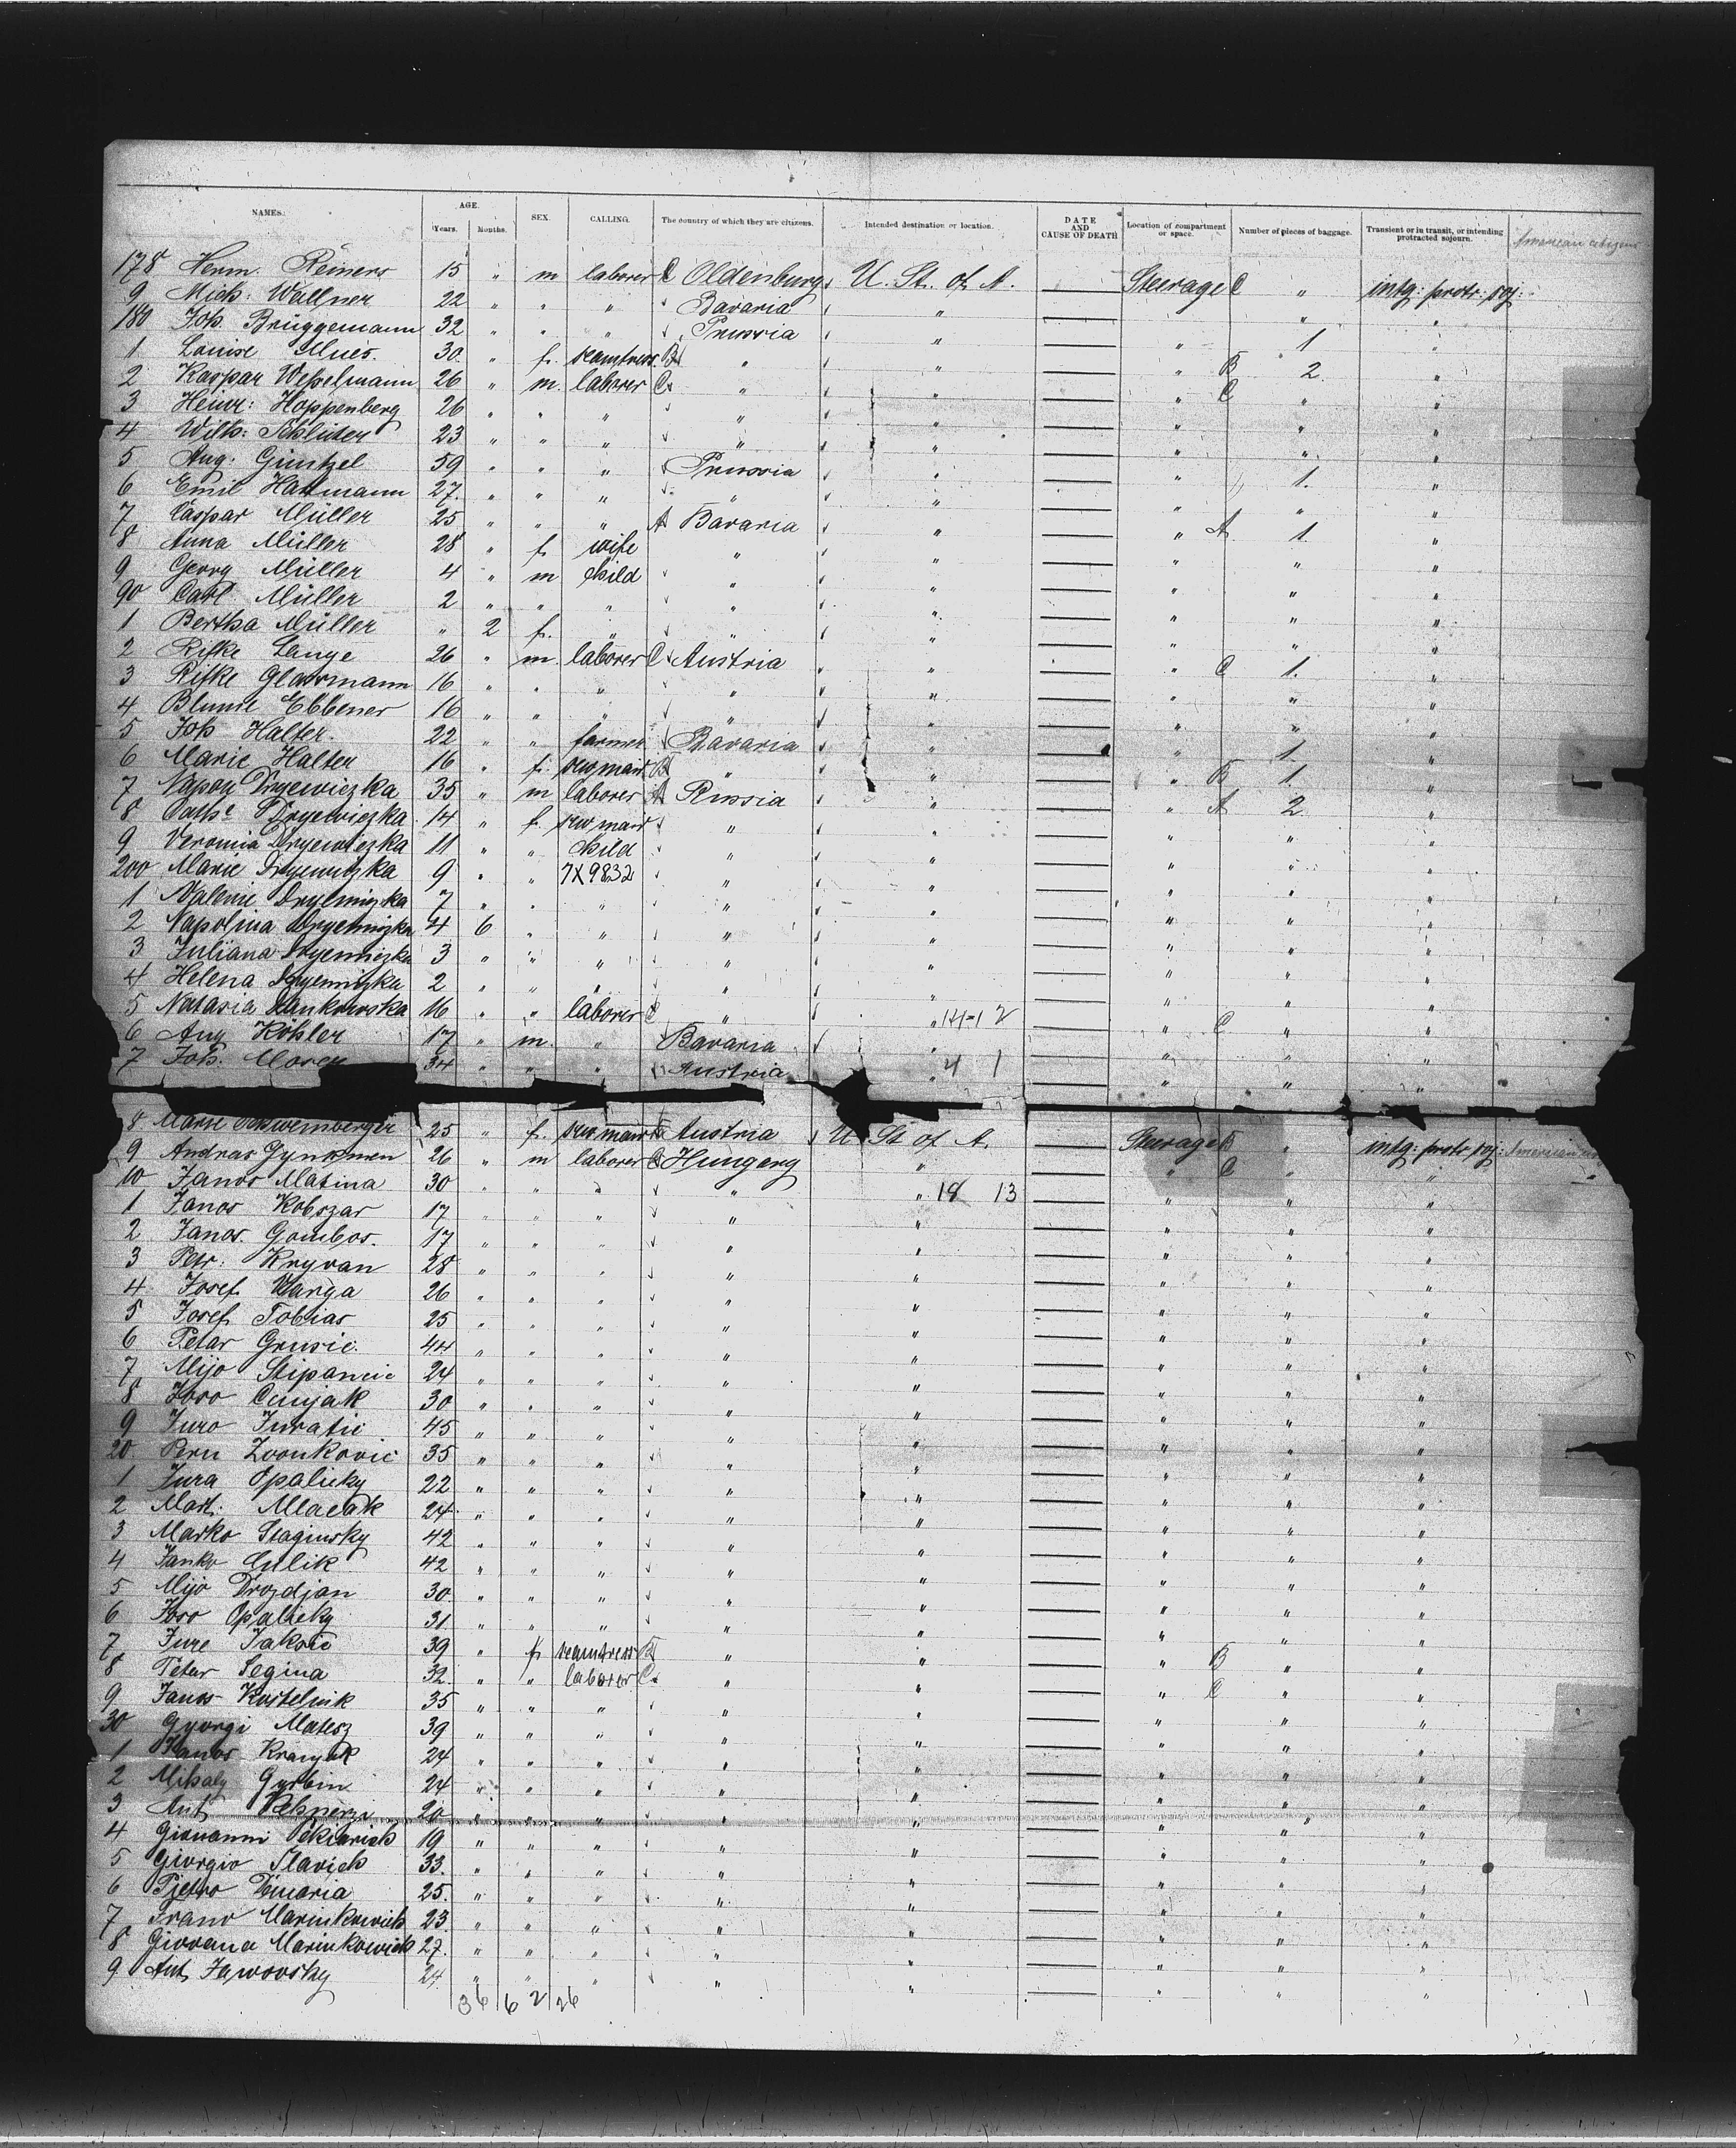 NAMES. AGE. Years. Months. SEX. CALLING. The country of which they are citizens. Intended destination or location. DATE AND CAUSE OF DEATH Location of compartment or space. Number of pieces of baggage. Transient or in transit, or intending protracted sojourn. American citizens
178 Herm. Reiners 15 " m laborer C Oldenburg U. St. of A. Steerage C " intg: protr: soj:
9 Mich: Wallner 22 " " " Bavaria " " "
180 Joh. Brüggemann 32 " " " Prussia " " 1 "
1 Louise Mues 30 " f. seamtress B " " " B 2 "
2 Kaspar Weßelmann 26 " m. laborer C " " " C " "
3 Heinr: Hoppenberg 26 " " " " " " " "
4 Wilh: Schlüter 23 " " " " " " " "
5 Aug: Güntzel 59 " " " Prussia " " 1. "
6 Emil Hartmann 27. " " " " " " " "
7 Caspar Müller 25 " " " A Bavaria " " A 1 "
8 Anna Müller 28 " f. wife " " " " "
9 Georg Müller 4 " m child " " " " "
90 Carl Müller 2 " " " " " " " "
1 Bertha Müller " 2 f. " " " " " "
2 Rifke Lange 26 " m. laborer C Austria " " C 1. "
3 Rifke Glasrmann 16 " " " " " " " "
4 Blume Ebbener 16 " " " " " " " "
5 Joh Halter 22 " " farmer Bavaria " " 1. "
6 Marie Halter 16 " f. serv maid B " " " B 1. "
7 Dryewiczka 35 " m laborer A Russia " " A 2 "
8 Cathe Dryewiczka 14 " f. serv maid " " " " "
9 Veronia Dryewiczka 11 " " child " " " " "
200 Marie Dryewiczka 9 " " 7X9832 " " " " "
1 Valerie Dryewiczka 7 " " " " " " " "
2 Napolina Dryewiczka 4 6 " " " " " " "
3 Juliana Dryewiczka 3 " " " " " " " "
4 Helena Dryewiczka 2 " " " " " " " "
5 Natasia Jankowska 16 " " laborer C " " 14-12 " C " "
6 Aug Köhler 17 " m. " Bavaria " " " "
7 Joh: 34 " " " Austria " 4 1 " " "
8 Marie Schwemberger 25 " f. serv maid B Austria U. St of A. Steerage B " intg: protr: soj: American
9 Andras 26 " m laborer C Hungary " " C " "
10 Janos Matina 30 " " " " " 18 13 " " "
1 Janos Kobszar 17 " " " " " " " "
2 Janos Gombos. 17 " " " " " " " "
3 Petr: Kryvan 28 " " " " " " " "
4 Josef Varga 26 " " " " " " " "
5 Josef Tobias 25 " " " " " " " "
6 Petar Grusic. 44 " " " " " " " "
7 Mijo Stipancic 24 " " " " " " " "
8 Joso Cunjak 30 " " " " " " " "
9 Juro Juratic 45 " " " " " " " "
20 Peru Zvonkovic 35 " " " " " " " "
1 Jura Opalicky 22 " " " " " " " "
2 Mart: 24 " " " " " " " "
3 Marko 42 " " " " " " " "
4 Janko Culik 42 " " " " " " " "
5 Mijo Drozdjan 30 " " " " " " " "
6 Joso Opalicky 31 " " " " " " " "
7 Jure Jaksic 39 " f seamtress B " " " B " "
8 Petar Segina 32. " " laborer C " " " C " "
9 Janos Kostelnik 35 " " " " " " " "
30 Gyorgi Matesz 39 " " " " " " " "
1 Janos Kranyak 24 " " " " " " " "
2 Mihaly Gyrbin 24 " " " " " " " "
3 Ant 20 " " " " " " " "
4 Giovanni 19 " " " " " " " "
5 Giorgio Slavich 33. " " " " " " " "
6 Pietro 25. " " " " " " " "
7 Frano Marinkovich 23 " " " " " " " "
8 Giovana Marinkowich 27. " " " " " " " "
9 Ant Jaworsky 24 " " " " " " " "
36 6 2 26